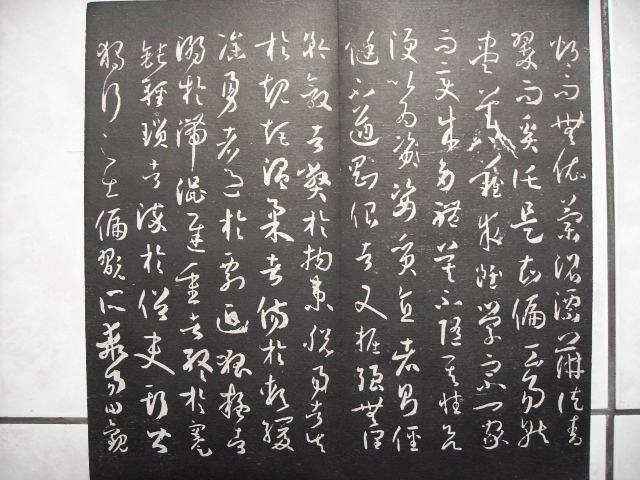 灼而無依蘭沼漂蓱徒青
翠而奚託是知偏工易就
盡善難求雖學宗一家
而變成多體莫不隨其性欲
便以為資姿質直者則徑
侹不遒剛佷者又掘強無潤
矜斂者弊於拘束脫易者失
於規矩溫柔者傷於軟緩
躁勇者過於剽迫狐疑者
溺於滯澀遲重者終於蹇
鈍輕瑣者淬於俗吏斯皆
獨行之士偏翫所乖易曰觀